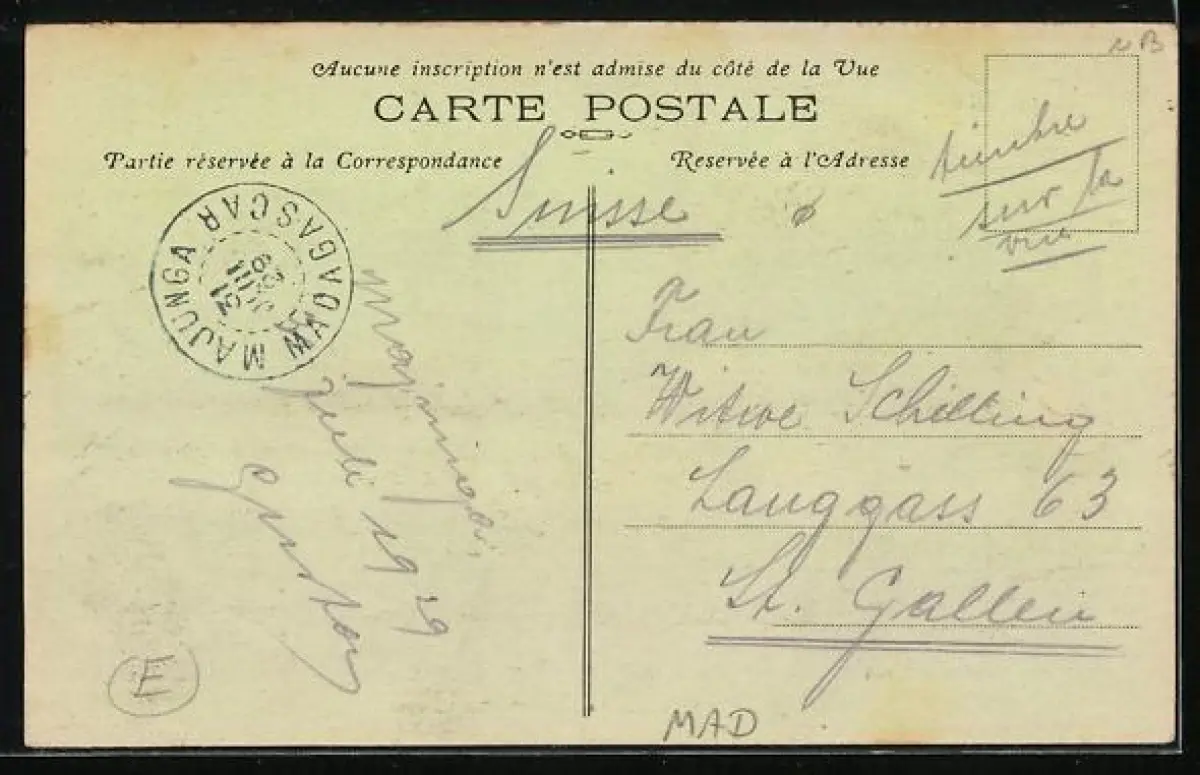 NB
Aucune inscription n'est admise du côté de la Vue
CARTE POSTALE
Partie réservée à la Correspondance
Reservée à l'Adresse
timbre
sur la
vue
Suisse
MAJUNGA MADAGASCAR
31
JUIL
29
Frau
Witwe Schilling
Langgass 63
St. Gallen
Majunga,
Juli 1929
Gustav
E
MAD